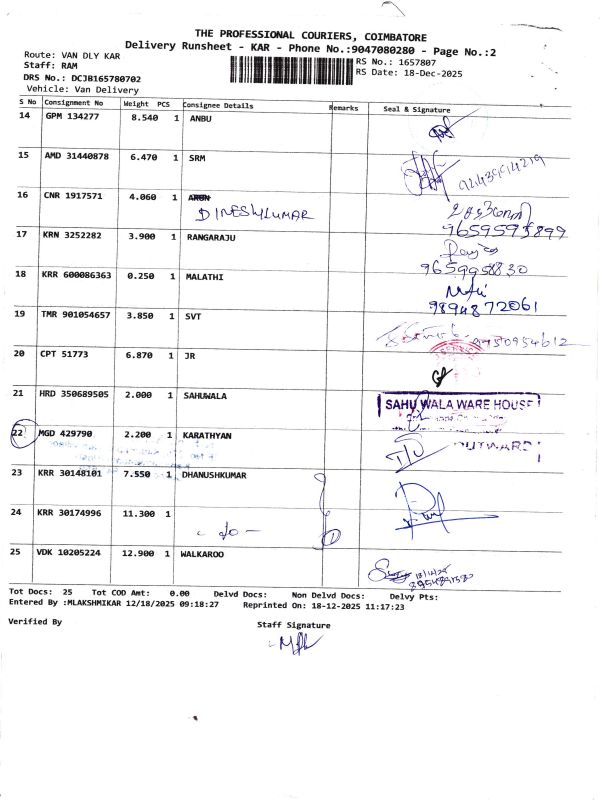 THE PROFESSIONAL COURIERS, COIMBATORE
Delivery Runsheet - KAR - Phone No.:9047080280 - Page No.:2
Route: VAN DLY KAR
RS No.: 1657807
Staff: RAM
RS Date: 18-Dec-2025
DRS No.: DCJB165780702
Vehicle: Van Delivery
S No Consignment No Weight PCS Consignee Details Remarks Seal & Signature
14 GPM 134277 8.540 1 ANBU
15 AMD 31440878 6.470 1 SRM
16 CNR 1917571 4.060 1 ARUN
DINESHKUMAR
9659593899
17 KRN 3252282 3.900 1 RANGARAJU
9659958830
18 KRR 600086363 0.250 1 MALATHI
9894872061
19 TMR 901054657 3.850 1 SVT
9450954612
20 CPT 51773 6.870 1 JR
21 HRD 350689505 2.000 1 SAHUWALA
SAHU WALA WARE HOUSE
22 MGD 429790 2.200 1 KARATHYAN
OUTWARD
23 KRR 30148101 7.550 1 DHANUSHKUMAR
24 KRR 30174996 11.300 1
25 VDK 10205224 12.900 1 WALKAROO
Tot Docs: 25 Tot COD Amt: 0.00 Delvd Docs: Non Delvd Docs: Delvy Pts:
Entered By :MLAKSHMIKAR 12/18/2025 09:18:27 Reprinted On: 18-12-2025 11:17:23
Verified By
Staff Signature